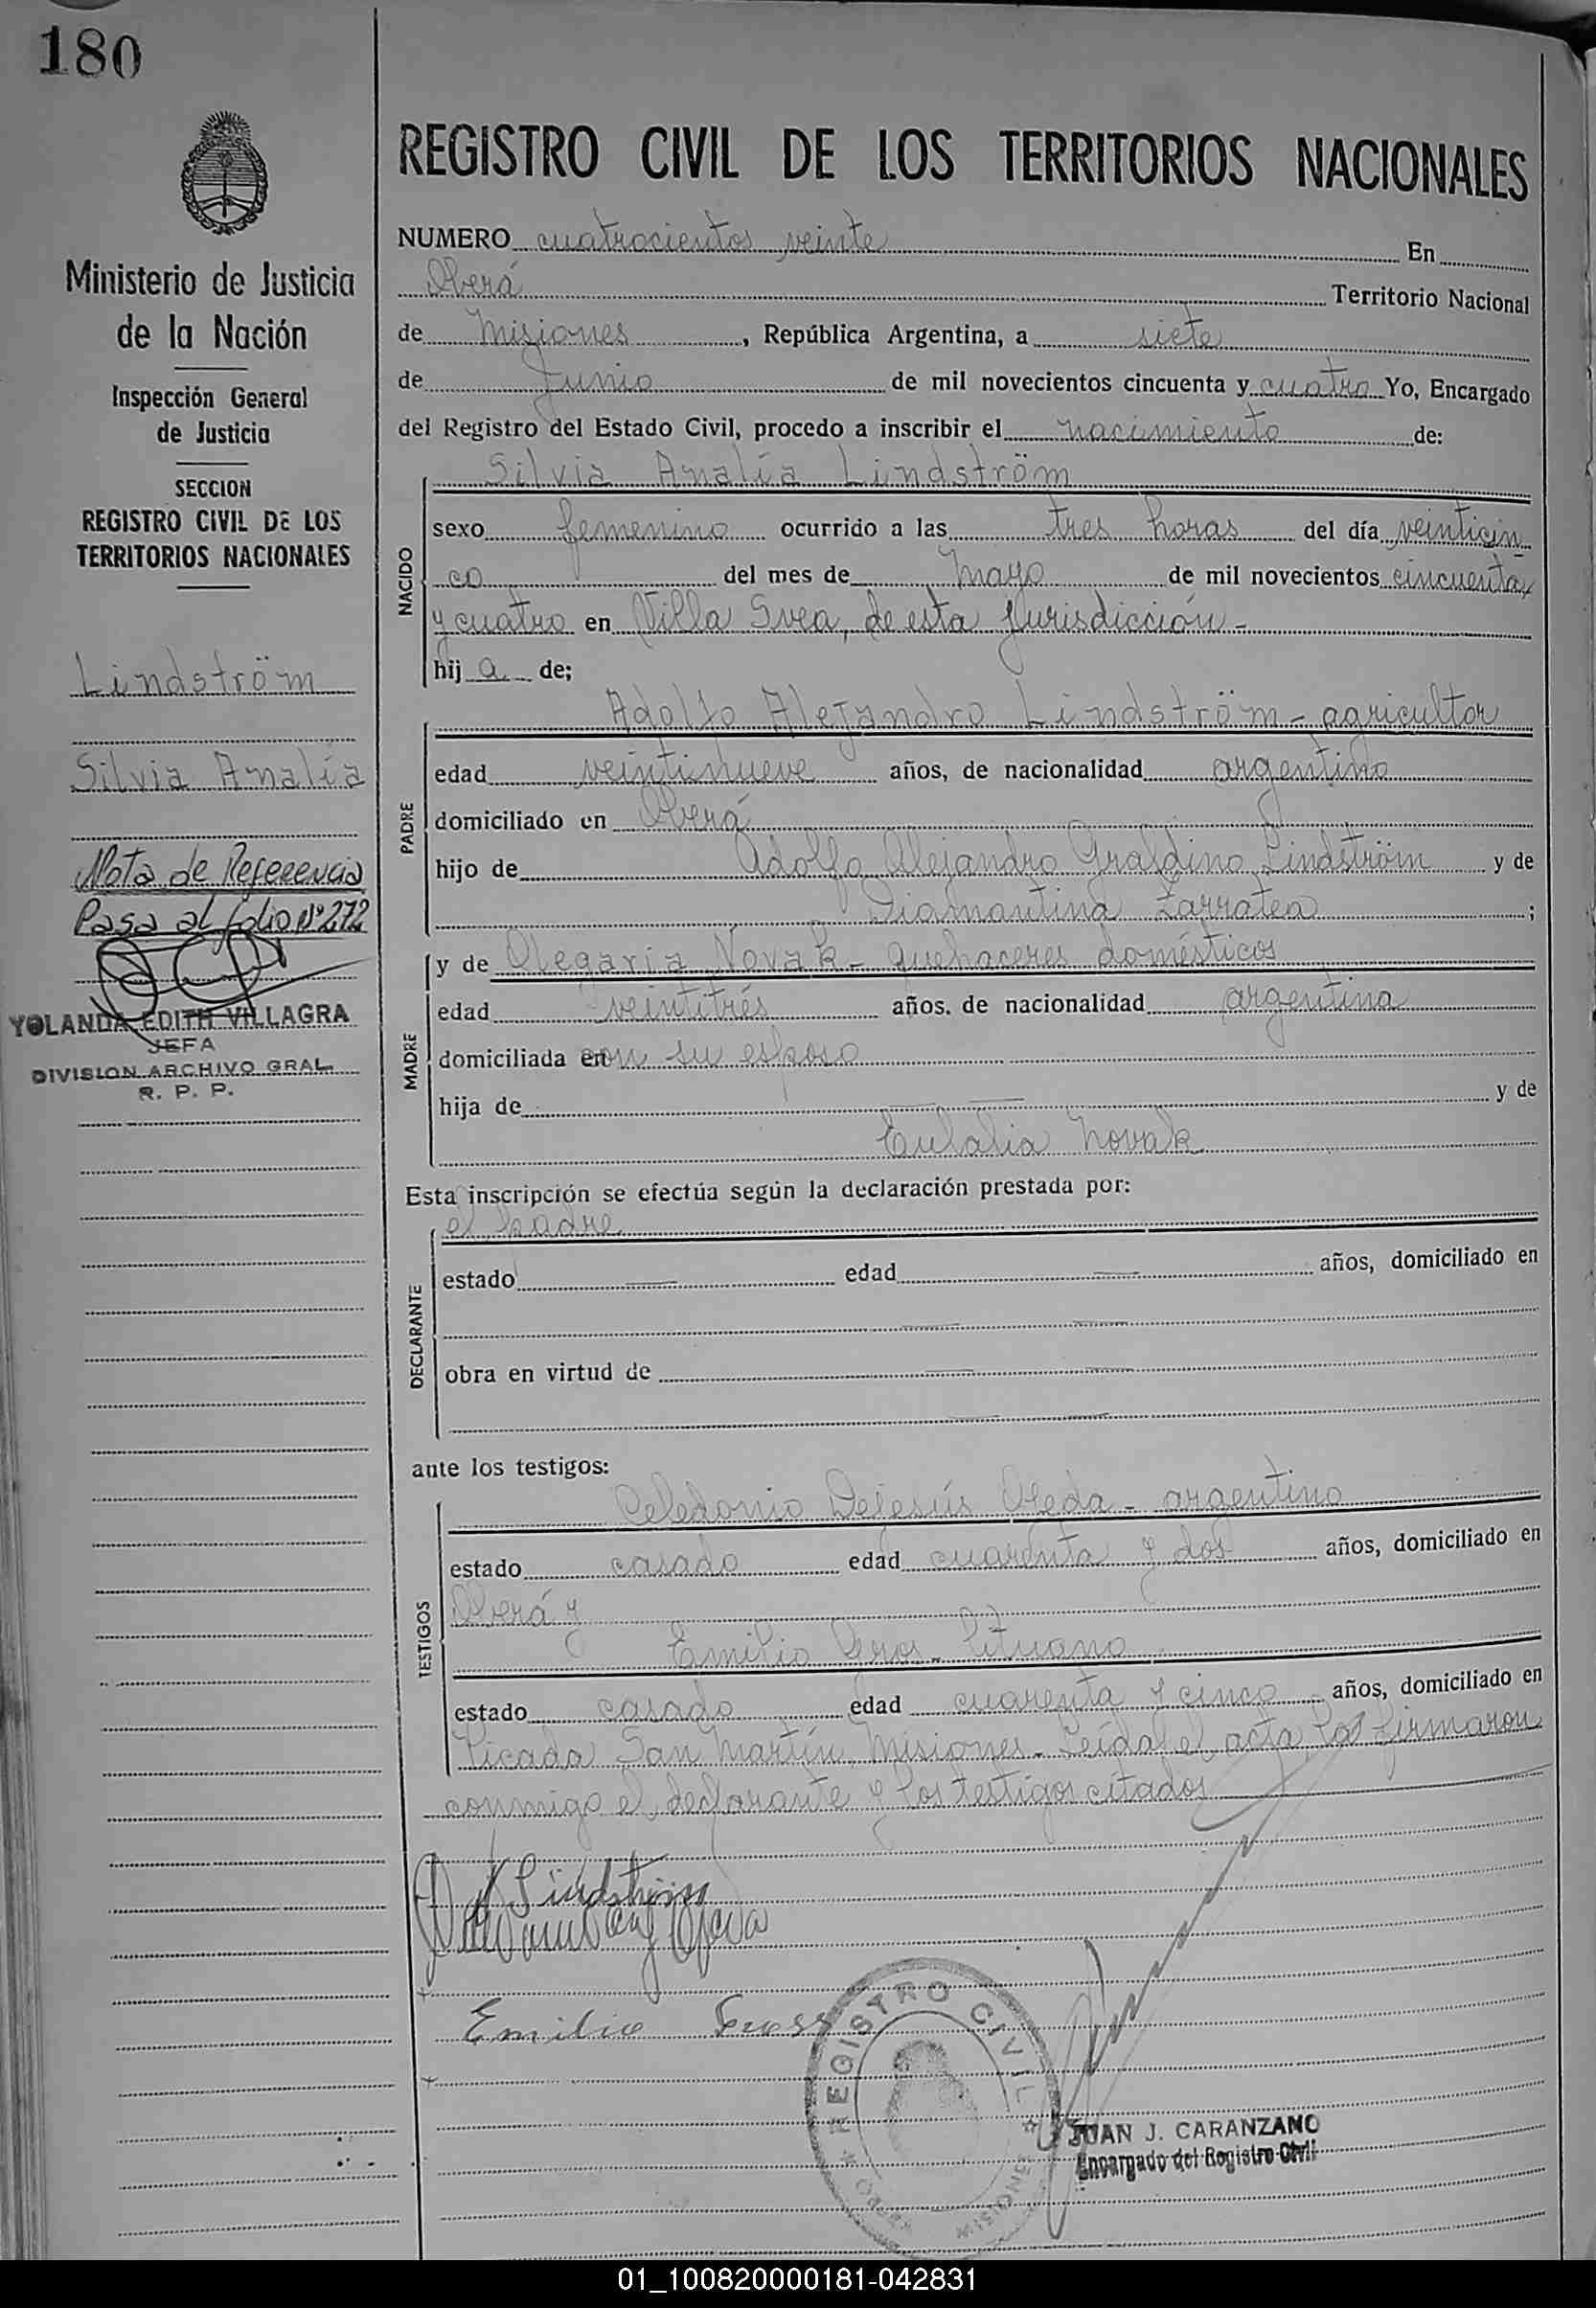 180
Ministerio de Justicia
de la Nación
Inspección General
de Justicia
SECCION
REGISTRO CIVIL DE LOS
TERRITORIOS NACIONALES
Lindström
Silvia Analía
Nota de Referencia
Pasa al folio Nº 272
YOLANDA EDITH VILLAGRA
JEFA
DIVISION ARCHIVO GRAL.
R. P. P.
REGISTRO CIVIL DE LOS TERRITORIOS NACIONALES
NUMERO cuatrocientos veinte En
Oberá Territorio Nacional
de Misiones, República Argentina, a siete
de Junio de mil novecientos cincuenta y cuatro Yo, Encargado
del Registro del Estado Civil, procedo a inscribir el nacimiento de:
NACIDO
Silvia Analía Lindström
sexo femenino ocurrido a las tres horas del día veinticin
co del mes de Mayo de mil novecientos cincuenta
y cuatro en Villa Svea, de esta Jurisdicción -
hij a de;
PADRE
Adolfo Alejandro Lindström - agricultor
edad veintinueve años, de nacionalidad argentino
domiciliado en Oberá
hijo de Adolfo Alejandro Graldino Lindström y de
Diamantina Zarratea ;
MADRE
y de Olegaria Novak - quehaceres domésticos
edad veintitrés años. de nacionalidad argentina
domiciliada en con su esposo
hija de y de
Eulalia Novak
Esta inscripción se efectúa según la declaración prestada por:
el padre
DECLARANTE
estado edad años, domiciliado en
obra en virtud de
ante los testigos:
TESTIGOS
Celedonio Dejesús Ojeda - argentino
estado casado edad cuarenta y dos años, domiciliado en
Oberá y
Emilio Gros - lituano
estado casado edad cuarenta y cinco años, domiciliado en
Picada San Martín, Misiones - Leída el acta la firmaron
conmigo el declarante y los testigos citados
Lindström
Ojeda
Emilio Gross
REGISTRO CIVIL
MISIONES
JUAN J. CARANZANO
Encargado del Registro Civil
01_100820000181-042831